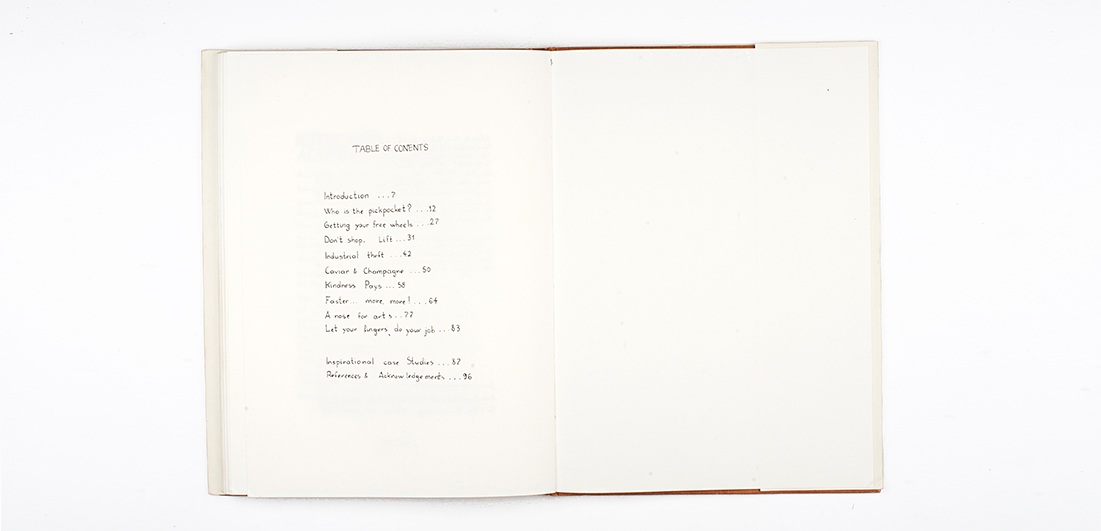 TABLE OF CONTENTS
Introduction ...7
Who is the pickpocket? ...12
Getting your free wheels ...27
Don't shop. Lift ...31
Industrial theft ...42
Caviar & Champagne ...50
Kindness Pays ...58
Faster... more, more! ...64
A nose for arts ..77
Let your fingers do your job ...83
Inspirational case Studies ...87
References & Acknowledgements ...96